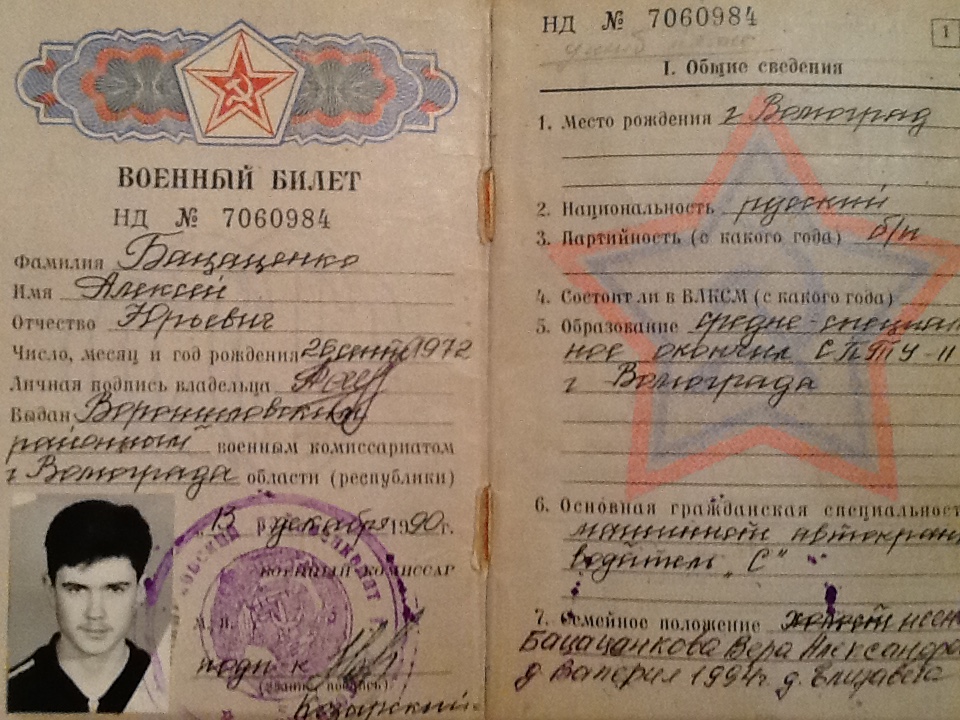 ВОЕННЫЙ БИЛЕТ
НД № 7060984
Фамилия Бацаценко
Имя Алексей
Отчество Юрьевич
Число, месяц и год рождения 26 сент 1972
Личная подпись владельца
Выдан Ворошиловским
районным военным комиссариатом
г Волгограда области (республики)
13 декабря 1990 г.
ВОЕННЫЙ КОМИССАР
М. П.
подп-к
(звание, подпись)
НД № 7060984
1
I. Общие сведения
1. Место рождения г Волгоград
2. Национальность русский
3. Партийность (с какого года) б/п
4. Состоит ли в ВЛКСМ (с какого года)
5. Образование средне-специаль
ное окончил СПТУ-11
г Волгограда
6. Основная гражданская специальност
машинист автокран
водитель „С"
7. Семейное положение холост
Вера Александров
д Валерия 1994г д. Елизавета